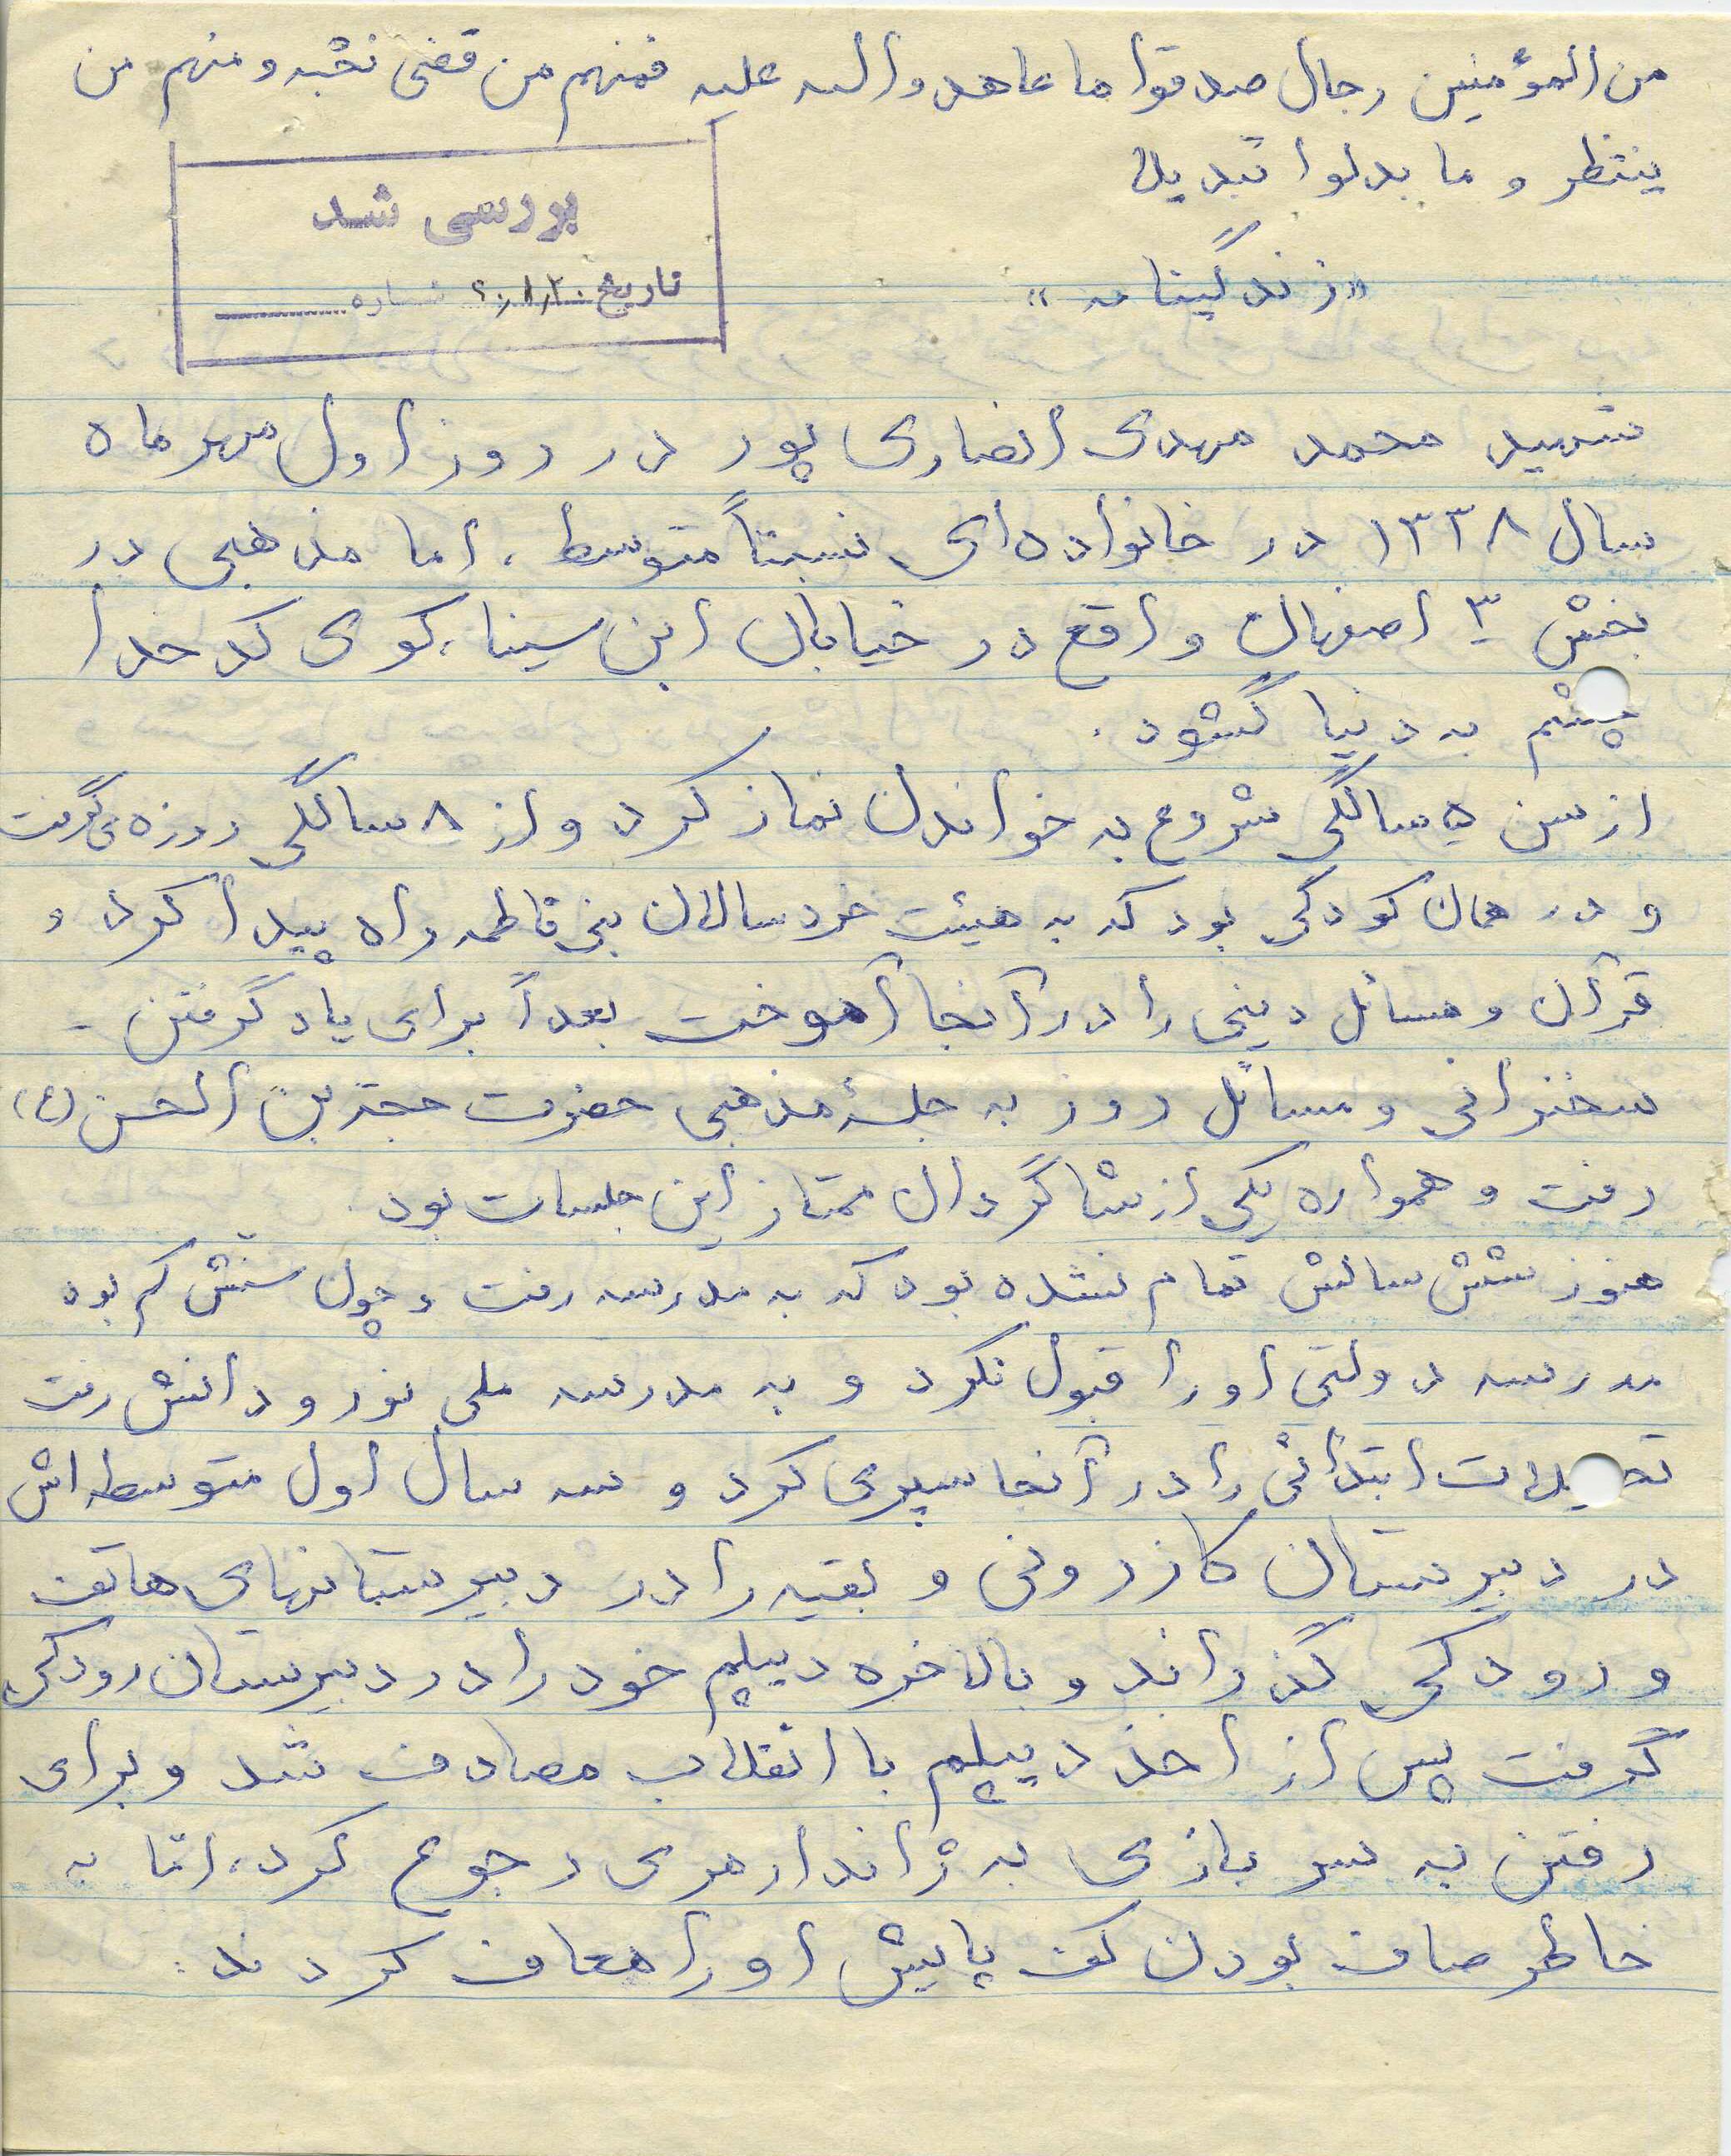 من المؤمنین رجال صدقوا ما عاهدوا الله علیه فمنهم من قضی نحبه و منهم من
ینتظر و ما بدلوا تبدیلا
بررسی شد
تاریخ شماره
«زندگینامه»
شهید محمد مهدی انصاری پور در روز اول مهر ماه
سال ۱۳۳۸ در خانواده‌ای نسبتاً متوسط، اما مذهبی در
بخش ۳ اصفهان واقع در خیابان ابن سینا، کوی کدخدا
چشم به دنیا گشود.
از سن ۵ سالگی شروع به خواندن نماز کرد و از ۸ سالگی روزه می‌گرفت
و در همان کودکی بود که به هیئت خردسالان بنی فاطمه راه پیدا کرد و
قرآن و مسائل دینی را در آنجا آموخت بعداً برای یاد گرفتن -
سخنرانی و مسائل روز به جلسهٔ مذهبی حضرت حجة بن الحسن (ع)
رفت و همواره یکی از شاگردان ممتاز این جلسات بود.
هنوز شش سالش تمام نشده بود که به مدرسه رفت و چون سنش کم بود
مدرسه دولتی او را قبول نکرد و به مدرسه ملی نور و دانش رفت
تحصیلات ابتدائی را در آنجا سپری کرد و سه سال اول متوسطه‌اش
در دبیرستان کازرونی و بقیه را در دبیرستانهای هاتف
و رودکی گذراند و بالاخره دیپلم خود را در دبیرستان رودکی
گرفت پس از اخذ دیپلم با انقلاب مصادف شد و برای
رفتن به سربازی به ژاندارمری رجوع کرد، امّا به
خاطر صاف بودن کف پایش او را معاف کردند.